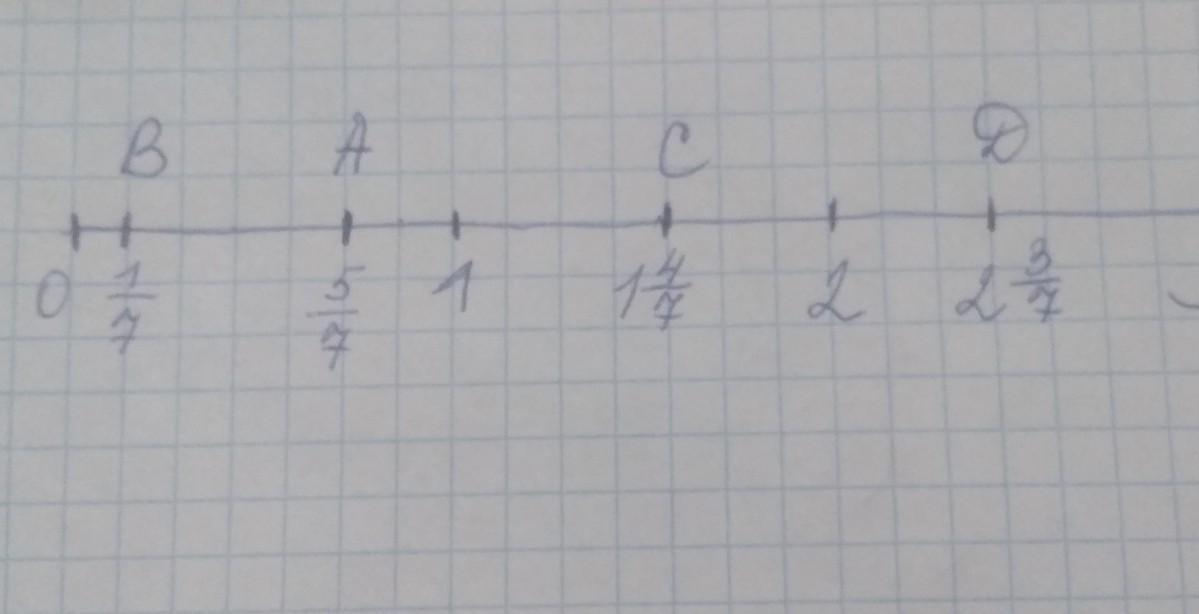 B A C D
0 1/7 5/7 1 1 4/7 2 2 3/7